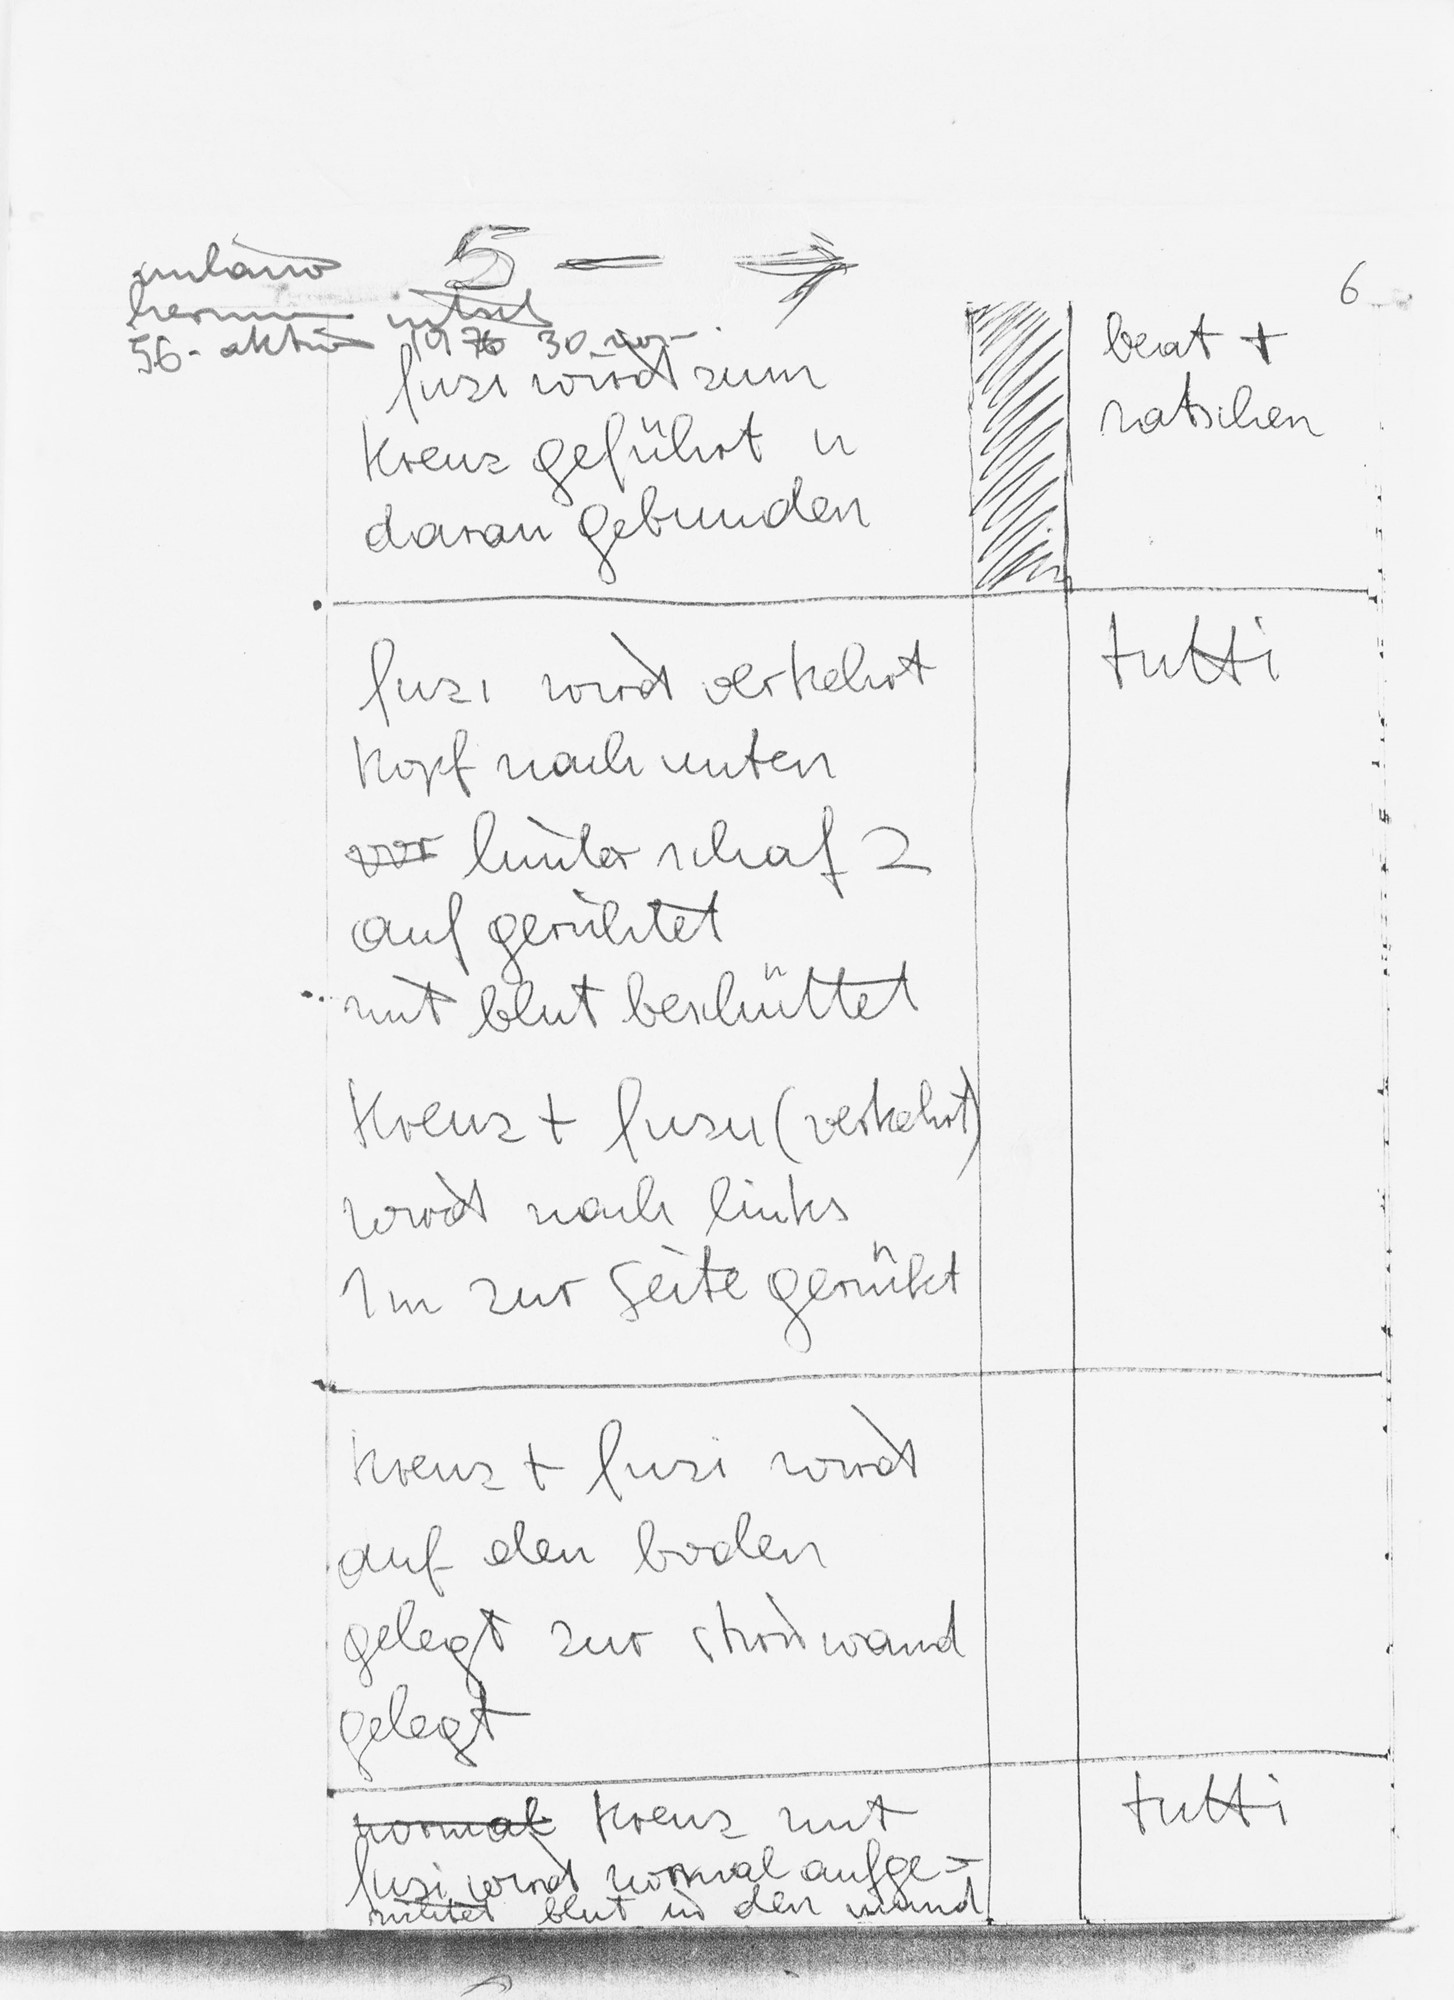 milano
hermann nitsch
56. aktion 1976 30. nov.
5 →
6
fuzi wird zum
kreuz geführt u
daran gebunden
beat +
ratschen
fuzi wird verkehrt
kopf nach unten
vor hinter schaf 2
auf gerichtet
mit blut beschüttet
kreuz + fuzi (verkehrt)
wird nach links
1m zur seite gerückt
tutti
kreuz + fuzi wird
auf den boden
gelegt zur stirnwand
gelegt
normal kreuz mit
fuzi wird normal aufge-
richtet blut in den mund
tutti